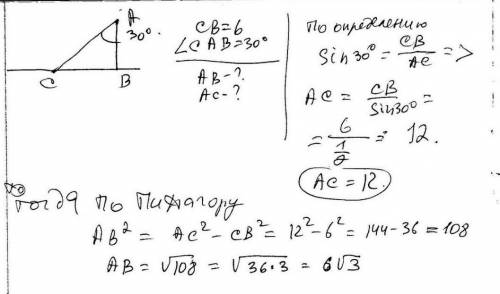 A
30°
C B
CB=6
∠CAB=30°
AB-?
AC-?
По определению
Sin30°= CB/AC =>
AC = CB/Sin30° =
= 6/(1/2) = 12.
AC=12.
Тогда по Пифагору
AB² = AC² - CB² = 12² - 6² = 144 - 36 = 108
AB = √108 = √36·3 = 6√3